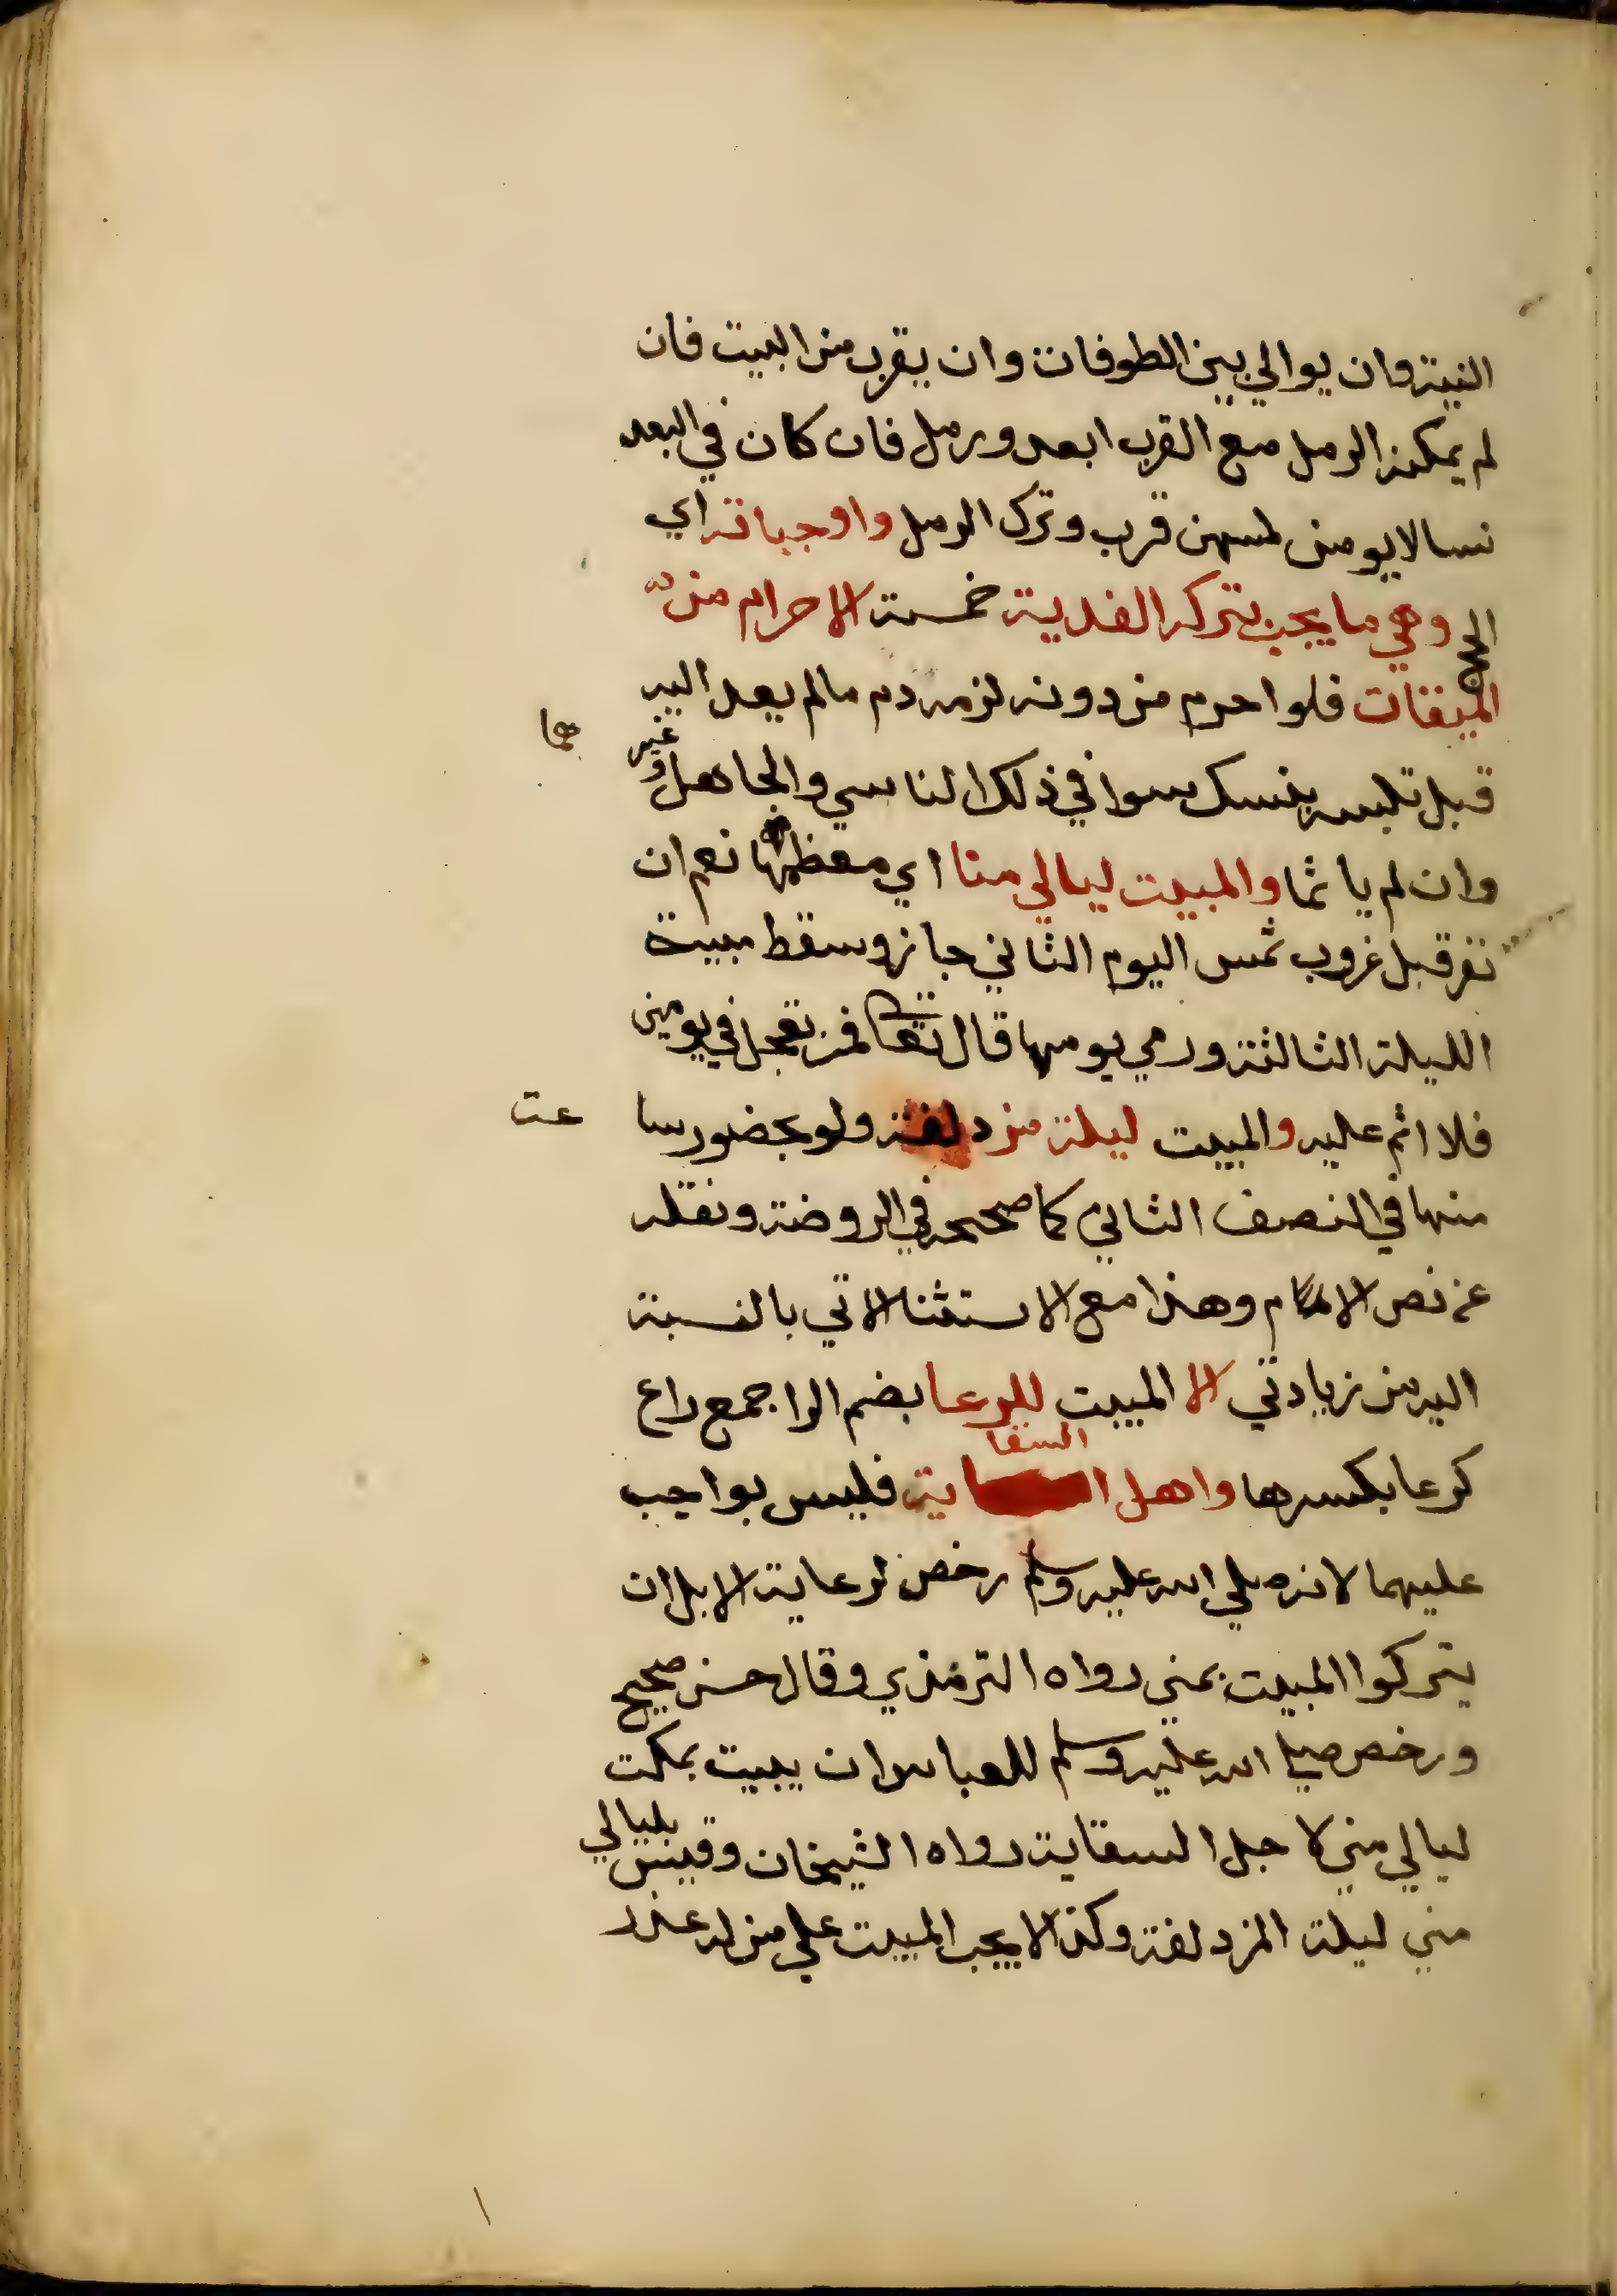 النية وان يوالي بين الطوفات وان يقرب من البيت فان
لم يمكنه الرمل مع القرب ابعد ورمل فان كان في البعد
نسا لا يومن لمسهن قرب وترك الرمل واوجباته اي
الحج وهي ما يجب بتركه الفدية خمسة الاحرام من
الميقات فلو احرم من دونه لزمه دم ما لم يعد اليه
قبل تلبسه بنسك سوا في ذلك الناسي والجاهل وغير هما
وان لم ياثما والمبيت ليالي منا اي معظمها نعم ان
نفر قبل غروب شمس اليوم الثاني جاز وسقط مبيت
الليلة الثالثة ورمي يومها قال تعا فمن تعجل في يومين
فلا اثم عليه والمبيت ليلة مزدلفة ولو بحضور سا عت
منها في النصف الثاني كما صححه في الروضة ونقله
عن نص الامام وهذا مع الاستثنا الاتي بالنسبة
اليه من زيادتي الا المبيت للرعا بضم الرا جمع راع
كرعا بكسرها واهل السقاية فليس بواجب
عليهما لانه صلي الله عليه وسلم رخص لرعاية الابل ان
يتركوا المبيت بمني رواه الترمذي وقال حسن صحيح
ورخص صلي الله عليه وسلم للعباس ان يبيت بمكت
ليالي مني لاجل السقاية رواه الشيخان وقيس بليالي
مني ليلة المزدلفة وكذا لا يجب المبيت علي من له عذر